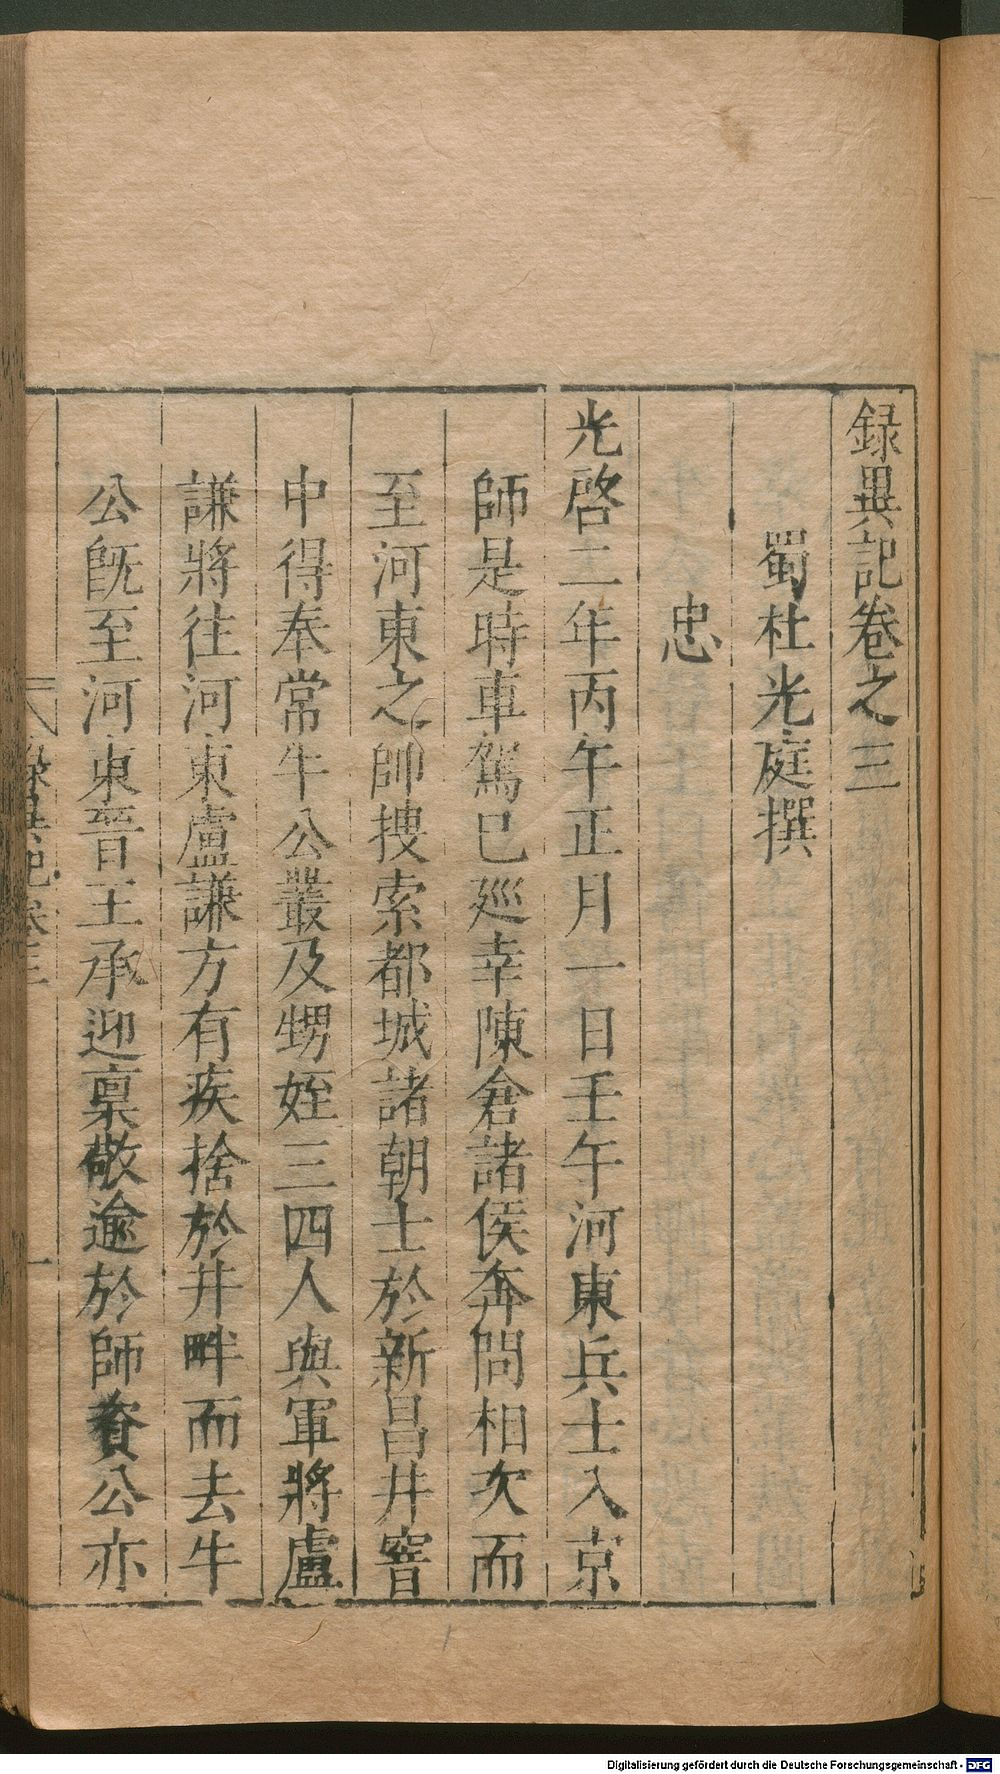 録異記卷之三
蜀杜光庭撰
忠
光啓二年丙午正月一日壬午河東兵士入京
師是時車駕已廵幸陳倉諸侯奔問相次而
至河東之帥搜索都城諸朝士於新昌井窨
中得奉常牛公叢及甥姪三四人與軍將盧
謙將往河東盧謙方有疾捨於井畔而去牛
公旣至河東晉王承迎禀敬逾於師資公亦
録異記卷三
一
Digitalisierung gefördert durch die Deutsche Forschungsgemeinschaft - DFG